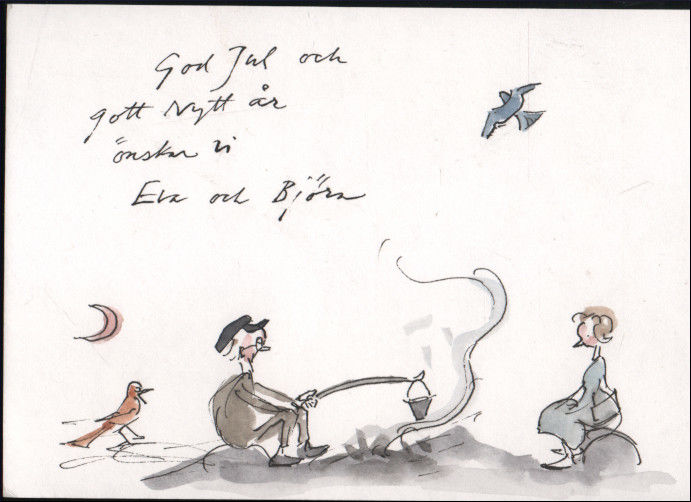 God Jul och
gott Nytt år
önskar vi
Eva och Björn